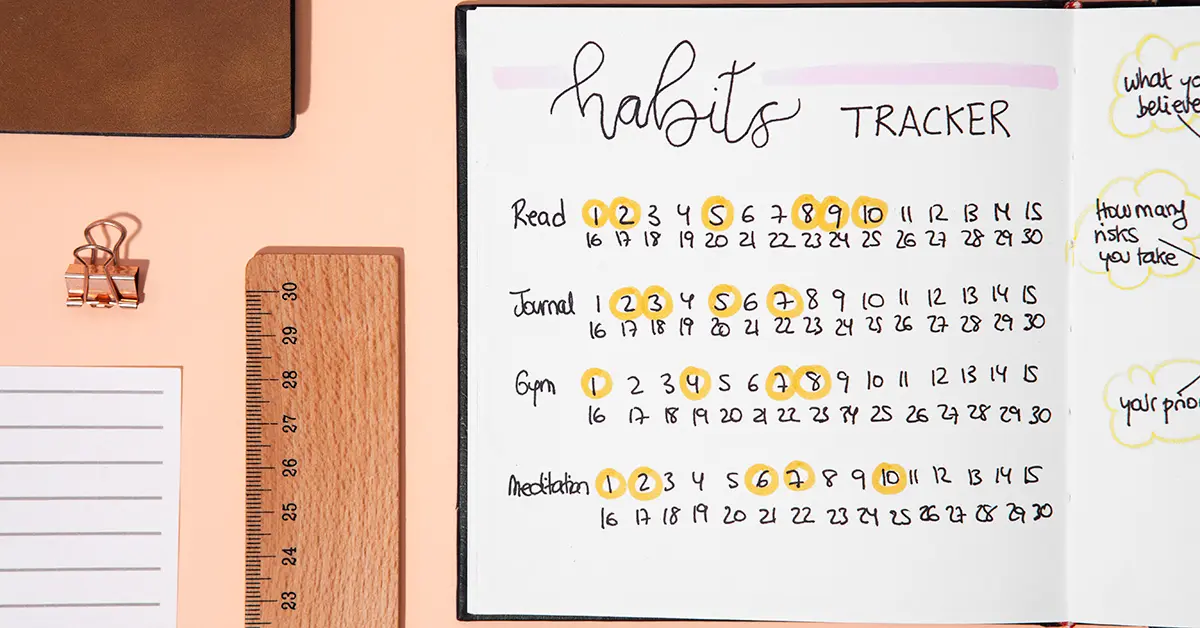 habits TRACKER
Read 1 2 3 4 5 6 7 8 9 10 11 12 13 14 15
16 17 18 19 20 21 22 23 24 25 26 27 28 29 30
Journal 1 2 3 4 5 6 7 8 9 10 11 12 13 14 15
16 17 18 19 20 21 22 23 24 25 26 27 28 29 30
Gym 1 2 3 4 5 6 7 8 9 10 11 12 13 14 15
16 17 18 19 20 21 22 23 24 25 26 27 28 29 30
Meditation 1 2 3 4 5 6 7 8 9 10 11 12 13 14 15
16 17 18 19 20 21 22 23 24 25 26 27 28 29 30
what yo
believe
How many
risks
you take
your prio
30
29
28
27
26
25
24
23